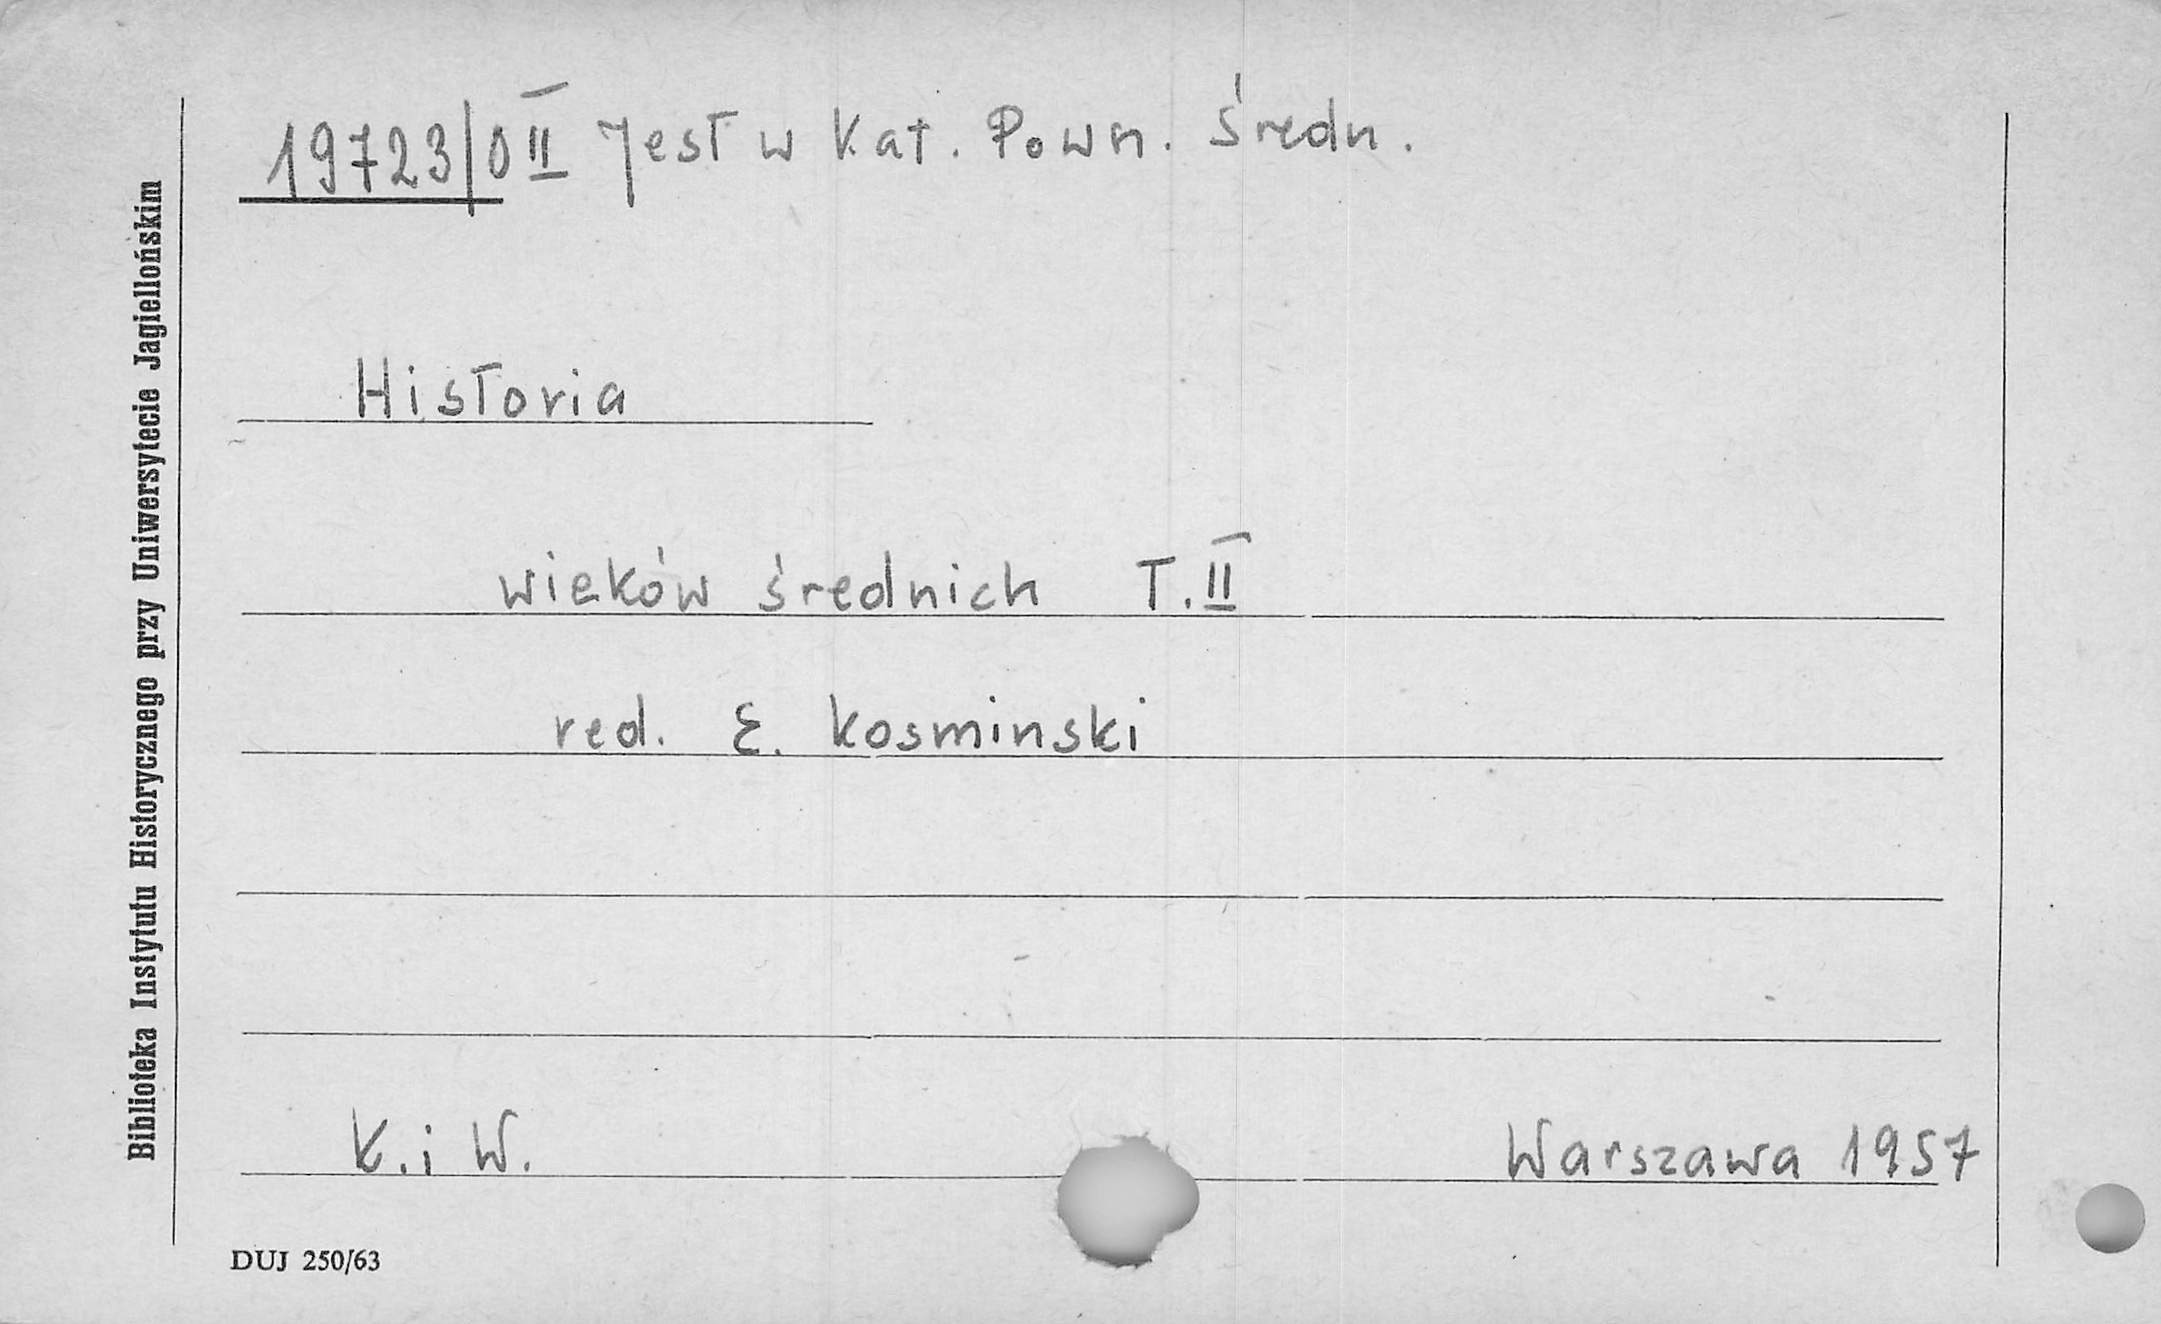 19723/0 II Jest w Kat. Pown. średn.
Historia
wieków średnich T. II
red. E. Kosminski
K. i W.
Warszawa 1957
DUJ 250/63
Biblioteka Instytutu Historycznego przy Uniwersytecie Jagiellońskim